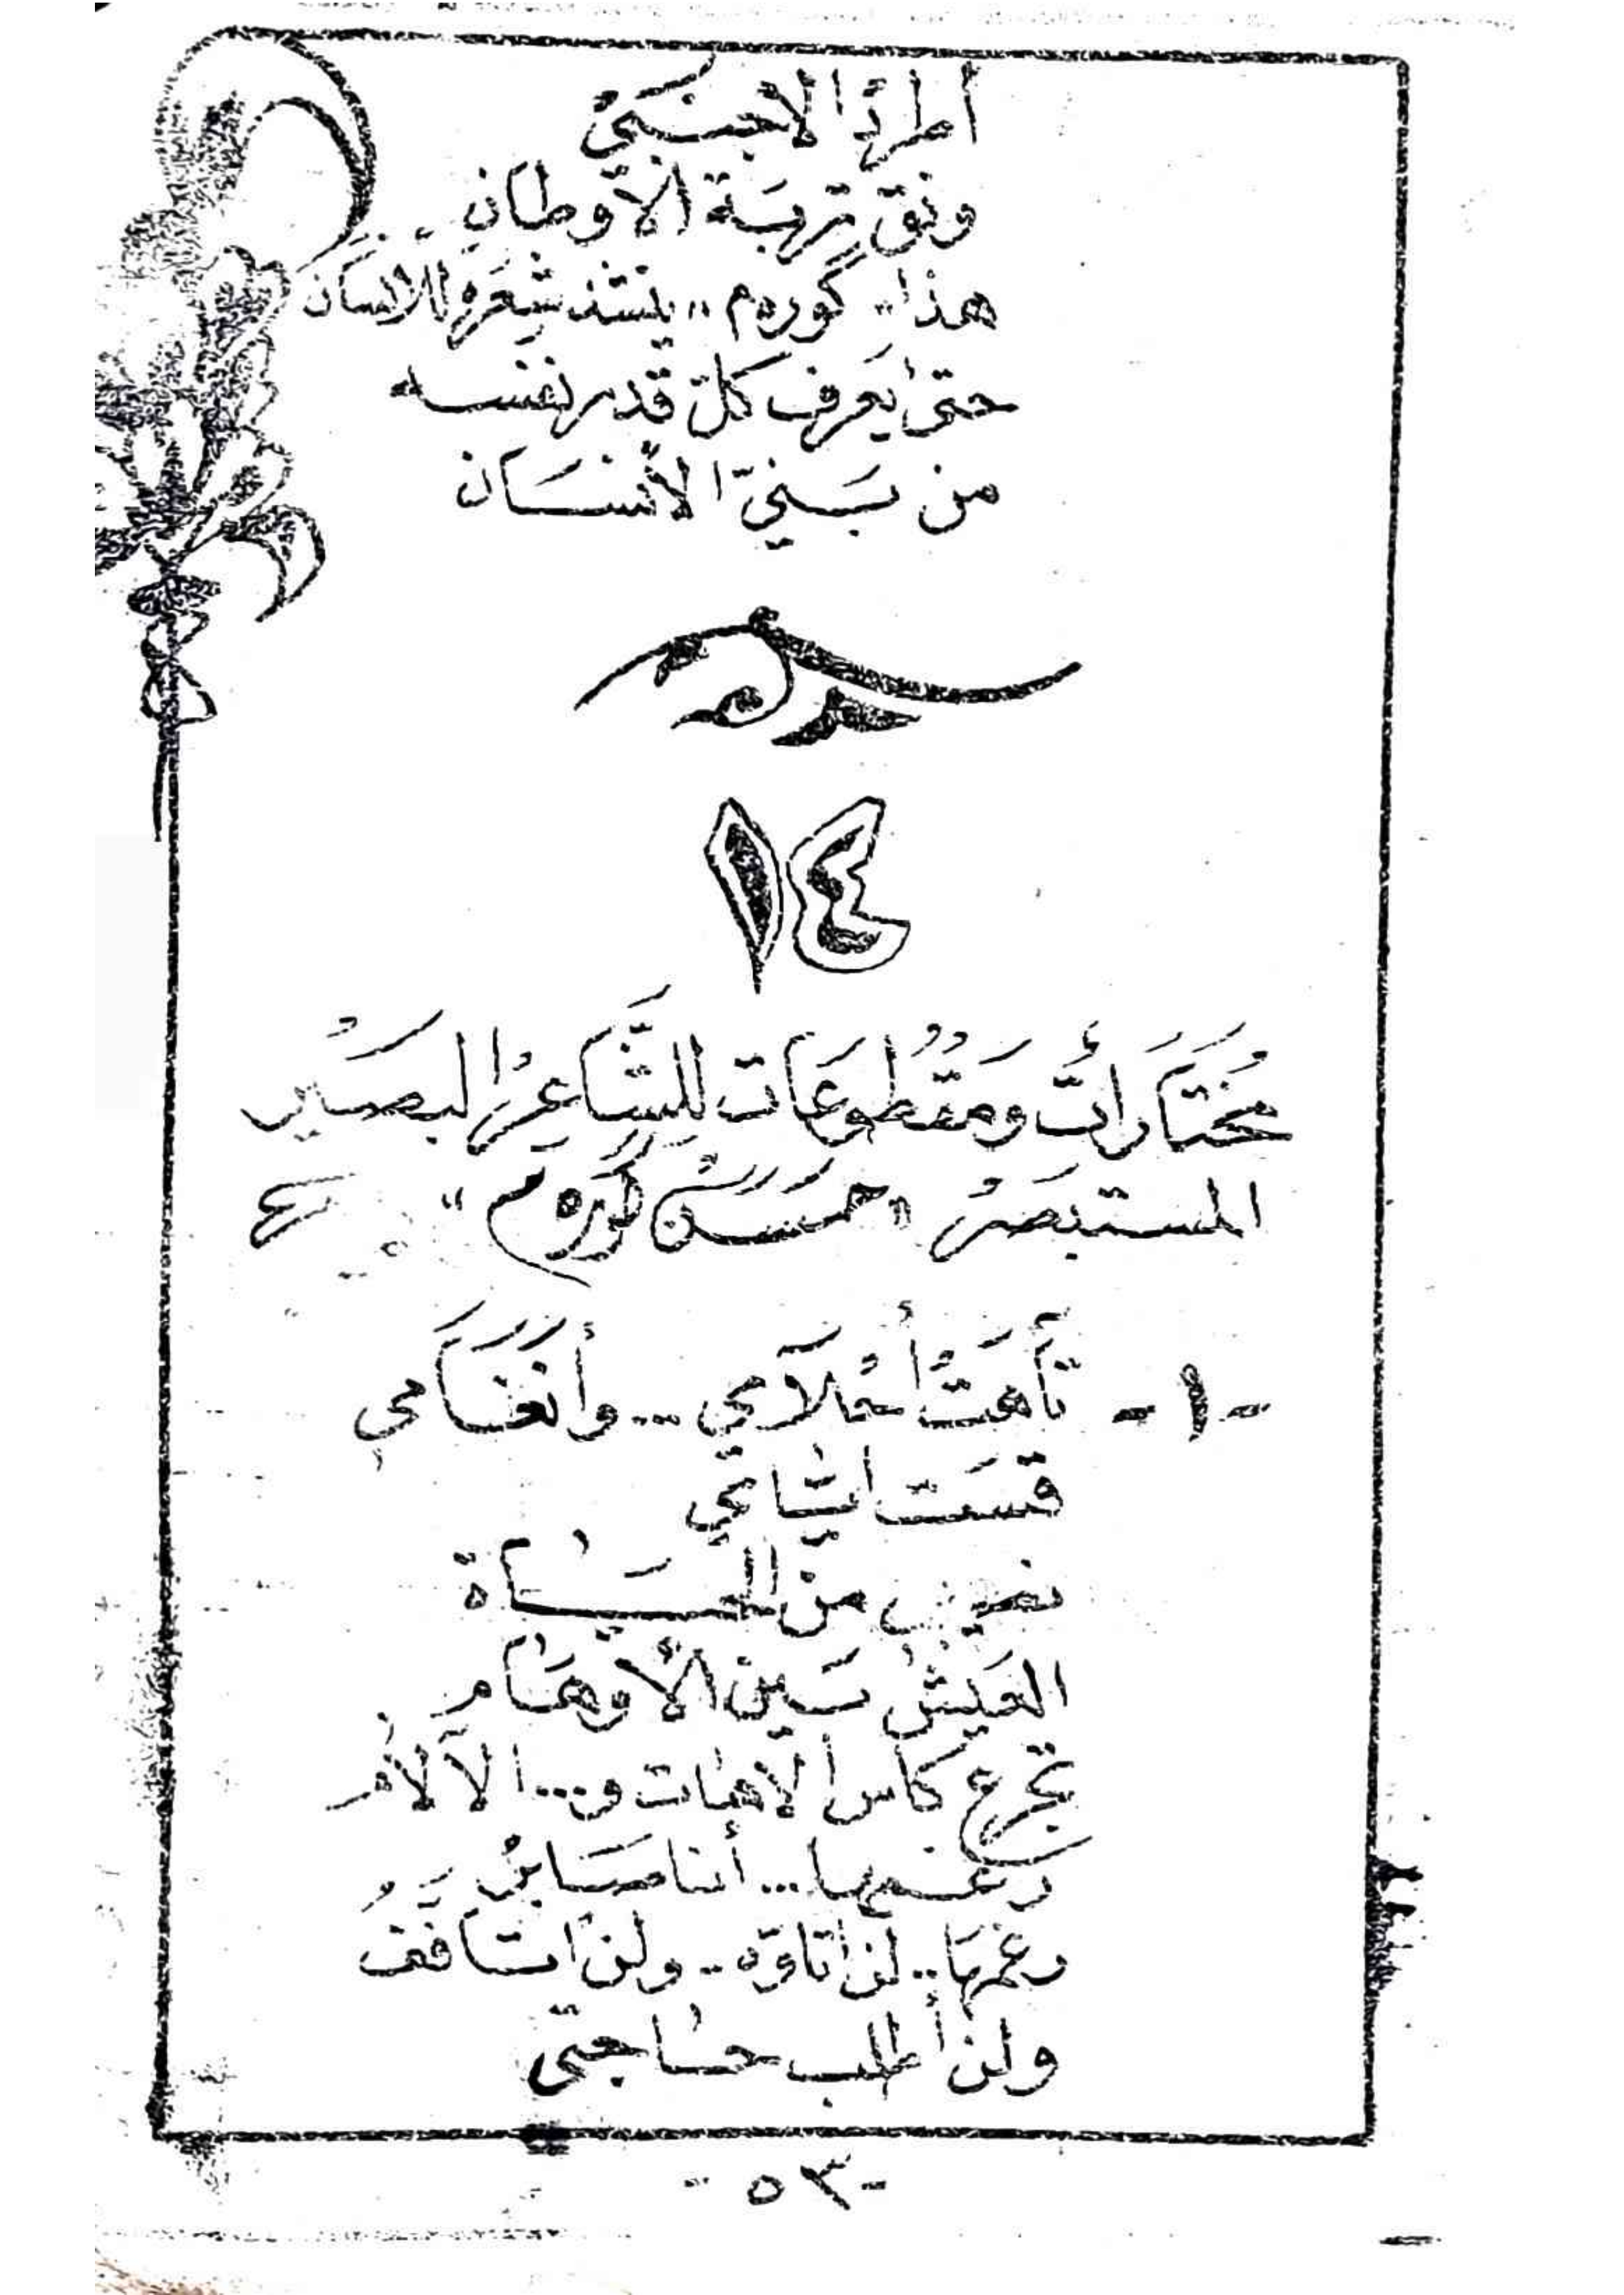 أطرد الأجنبيّ
ونقّ تربَة الأوطان ..
هذا „ گوره م „ ينشد شِعرَه للانسان
حتى يَعرف كلّ قدر نفسه
من بَنيّ الأنسَان
١٤
مُختَارَاتٌ وَمَقطُوعَات لِلشَّاعِرْ البصَير
المستبصَرْ „ حَسَنْ گوره م "
-١- تَأهَتْ أحْلآمي ... وأنغَامي
قسَت
نصيبي من الحيَاة
العَيشُ بَين الأوهَام
تجرع كأس الاهات و... الآلام
رغمها ... أنا صَابرْ
رغمهَا .. لن اتاوّه .. ولن اتأفّفُ
ولن أطلب حاجتى
- ٥٣ -